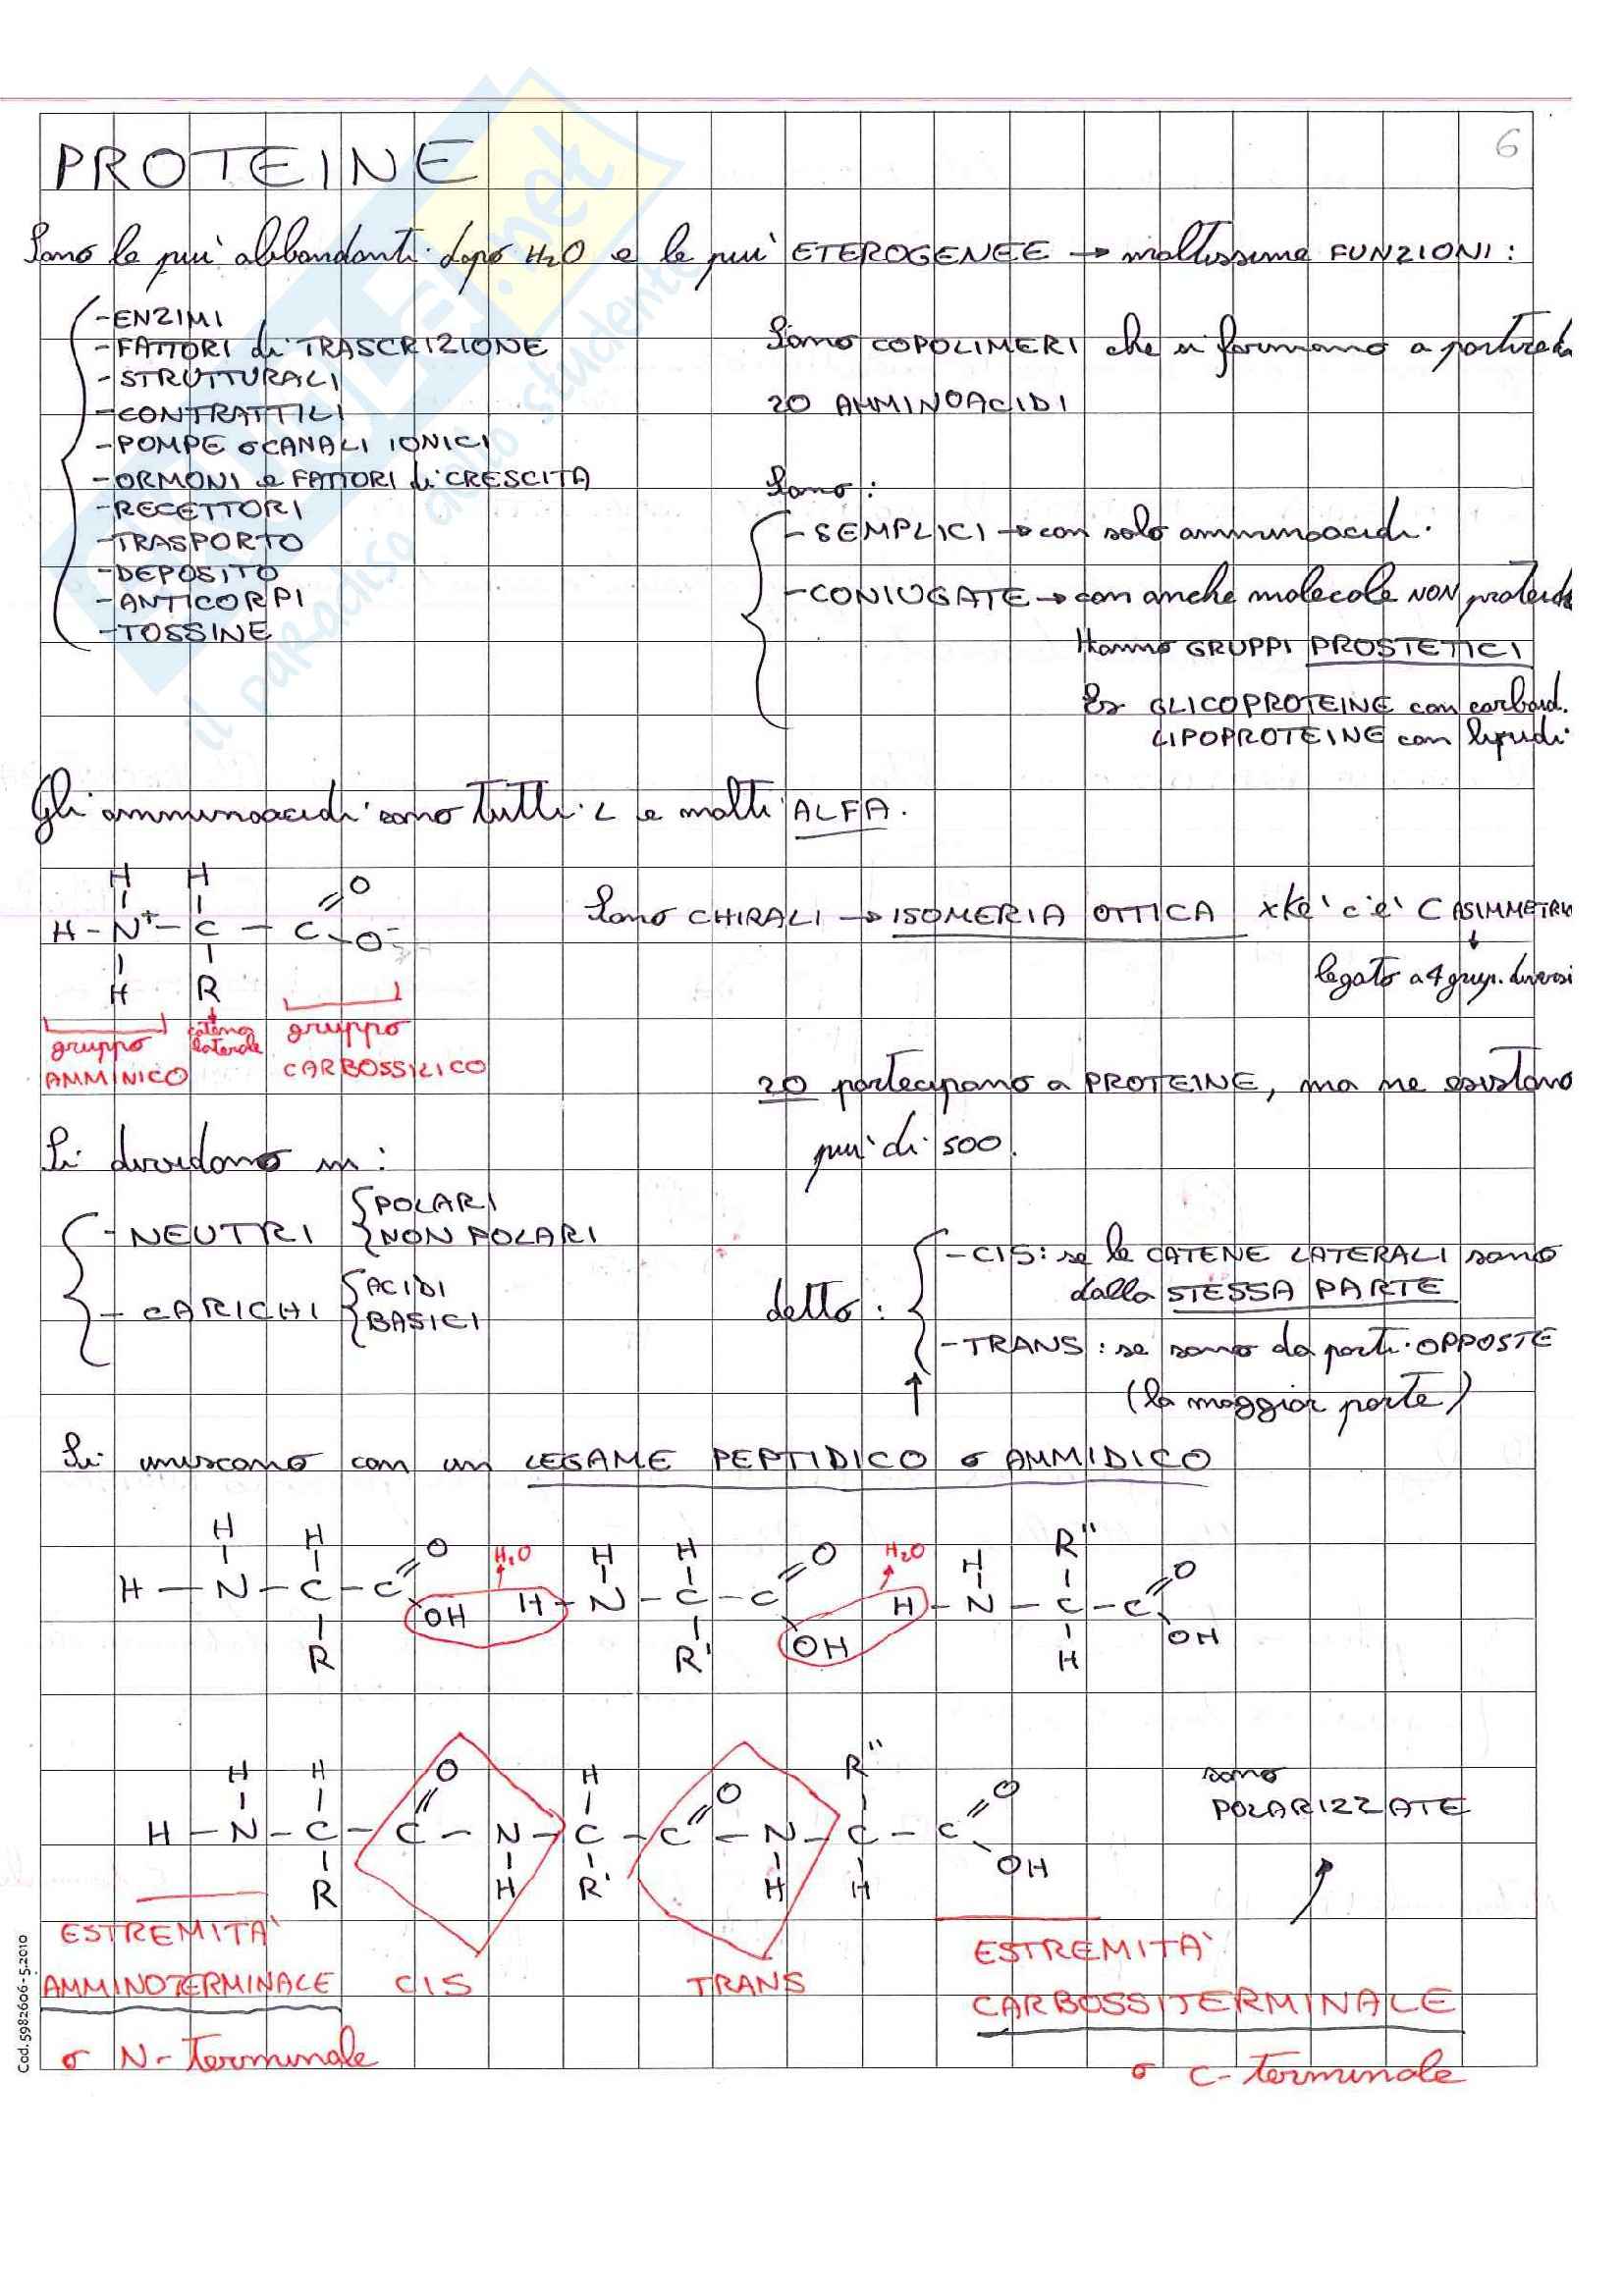 6
PROTEINE
Sono le più abbondanti dopo H2O e le più ETEROGENEE → moltissime FUNZIONI:
-ENZIMI
-FATTORI di TRASCRIZIONE
-STRUTTURALI
-CONTRATTILI
-POMPE o CANALI IONICI
-ORMONI e FATTORI di CRESCITA
-RECETTORI
-TRASPORTO
-DEPOSITO
-ANTICORPI
-TOSSINE
Sono COPOLIMERI che si formano a partire da
20 AMMINOACIDI
Sono:
-SEMPLICI → con solo amminoacidi
-CONIUGATE → con anche molecole NON
Hanno GRUPPI PROSTETICI
Es GLICOPROTEINE con carboid.
LIPOPROTEINE con lipidi
Gli amminoacidi sono tutti L e molti ALFA.
H H O
H - N+ - C - C - O-
H R
gruppo AMMINICO
catena laterale
gruppo CARBOSSILICO
Sono CHIRALI → ISOMERIA OTTICA xkè c'è C ASIMMETRI
legato a 4 grup. diversi
20 partecipano a PROTEINE, ma ne esistono
più di 500.
Si dividono in:
-NEUTRI POLARI
NON POLARI
- CARICHI ACIDI
BASICI
detto:
-CIS: se le CATENE LATERALI sono
dalla STESSA PARTE
-TRANS: se sono da parti OPPOSTE
(la maggior parte)
Si uniscono con un LEGAME PEPTIDICO o AMMIDICO
H H O H2O H H O H2O H R'' O
H - N - C - C OH H - N - C - C OH H - N - C - C OH
R R' H
H H O H O R'' O
H - N - C - C - N - C - C - N - C - C OH
R H R' H H
sono
POLARIZZATE
ESTREMITA'
AMMINOTERMINALE
o N-terminale
CIS
TRANS
ESTREMITA'
CARBOSSITERMINALE
o C-terminale
Cod. 5982606 - 5.2010
.net
il paradiso dello studente